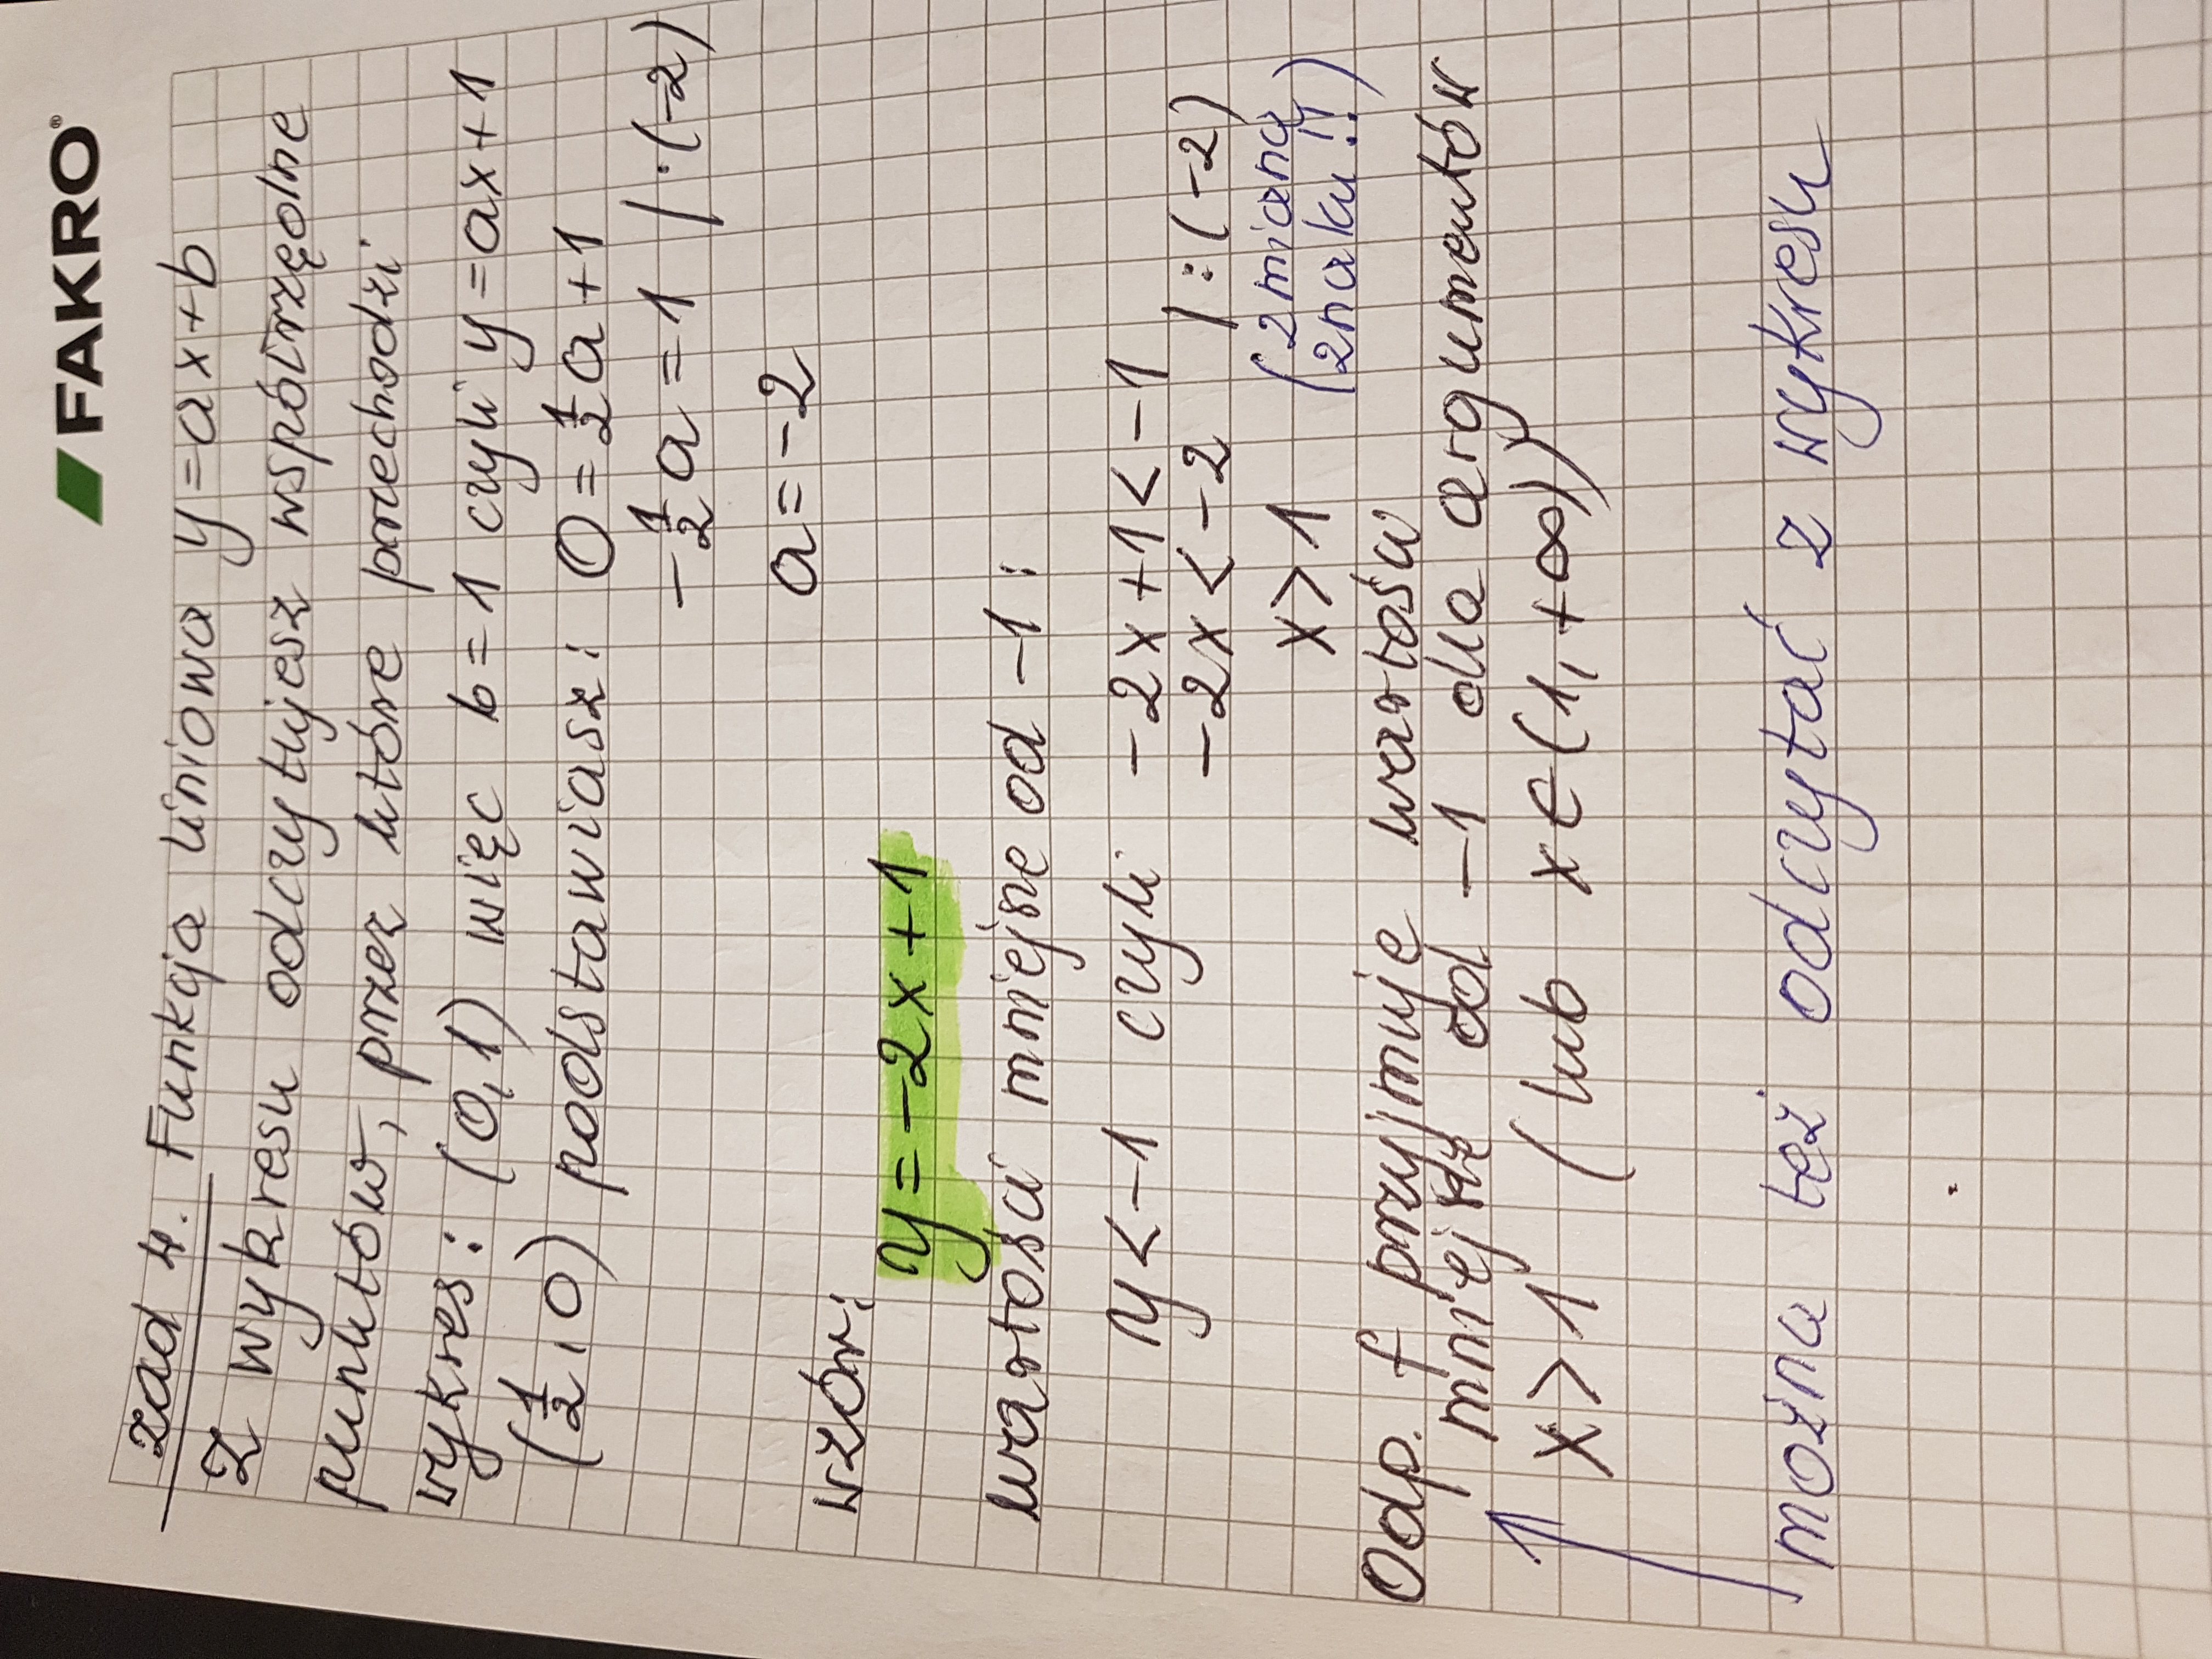 FAKRO®
zad 4. Funkcja liniowa y=ax+b
Z wykresu odczytujesz współrzędne
punktów, przez które przechodzi
wykres: (0,1) więc b=1 czyli y=ax+1
(½,0) podstawiasz: 0=½a+1
-½a=1 /·(-2)
a=-2
wzór: y=-2x+1
wartości mniejsze od -1:
y<-1 czyli -2x+1<-1
-2x<-2 /:(-2)
x>1 (zmiana znaku!!)
Odp. f przyjmuje wartości
mniejsze od -1 dla argumentów
x>1 (lub x∈(1,+∞))
można też odczytać z wykresu